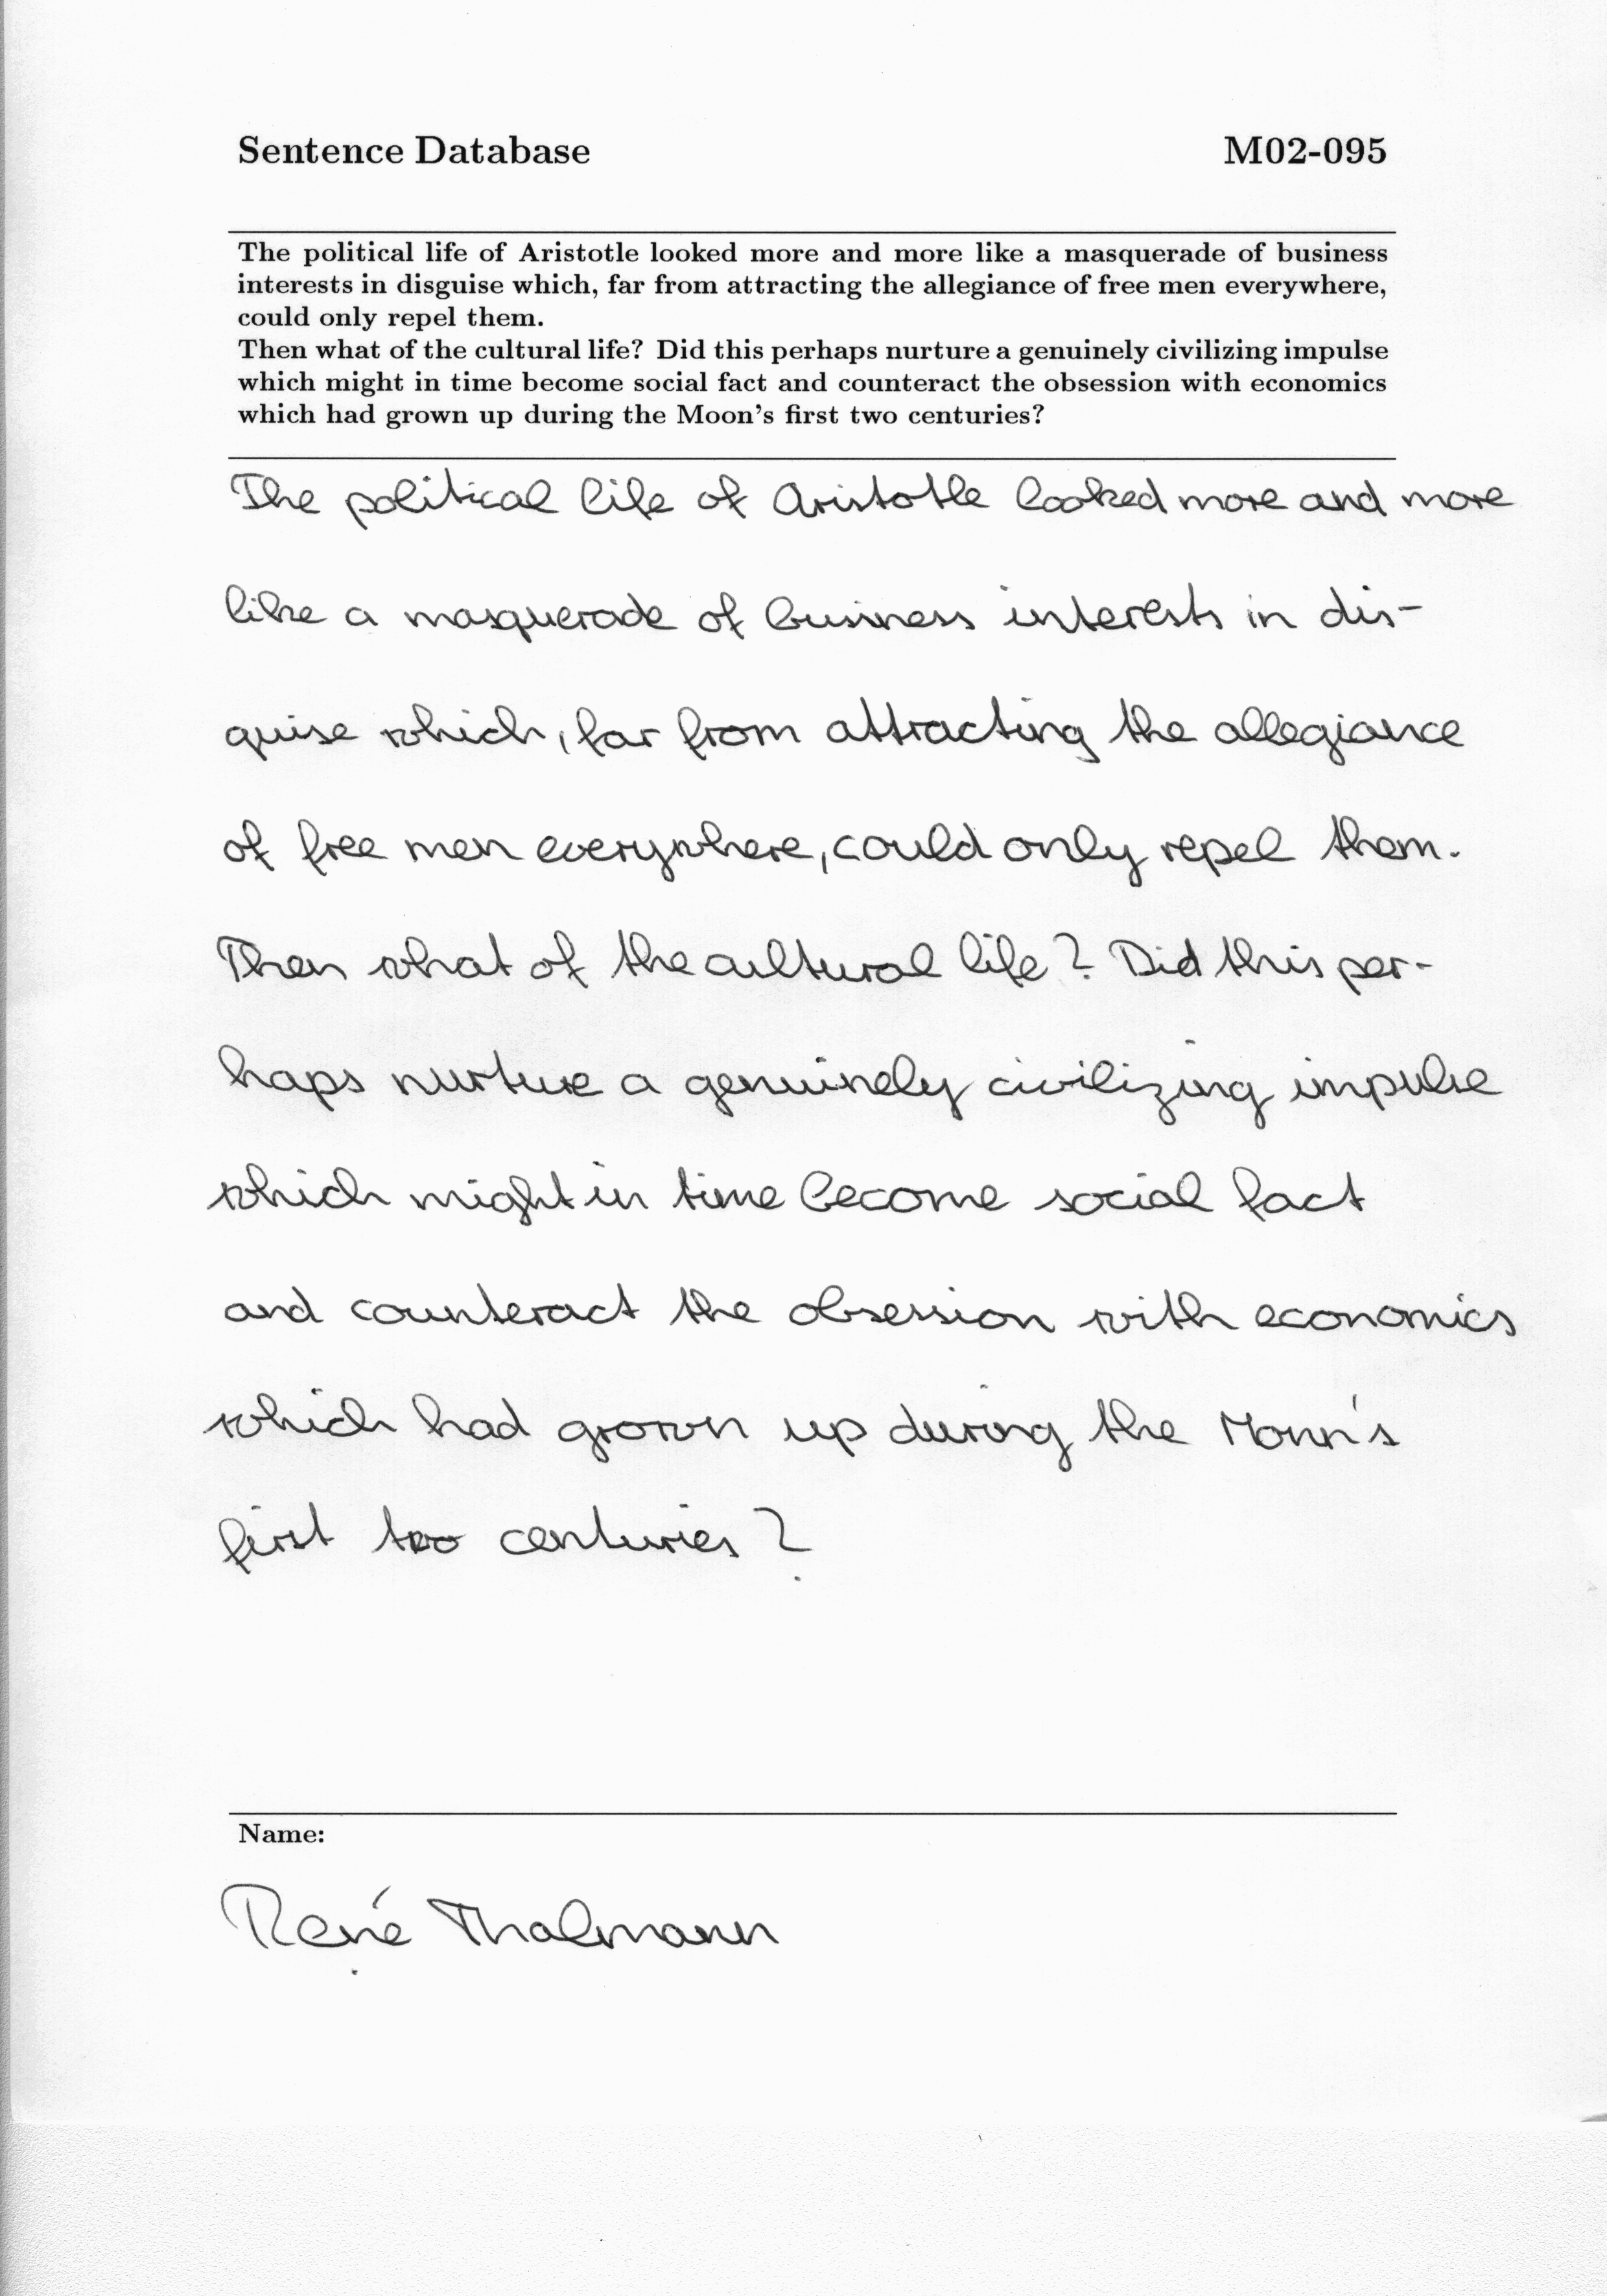 Sentence Database M02-095
The political life of Aristotle looked more and more like a masquerade of business
interests in disguise which, far from attracting the allegiance of free men everywhere,
could only repel them.
Then what of the cultural life? Did this perhaps nurture a genuinely civilizing impulse
which might in time become social fact and counteract the obsession with economics
which had grown up during the Moon's first two centuries?
The political life of Aristotle looked more and more
like a masquerade of business interests in dis-
guise which, far from attracting the allegiance
of free men everywhere, could only repel them.
Then what of the cultural life? Did this per-
haps nurture a genuinely civilizing impulse
which might in time become social fact
and counteract the obsession with economics
which had grown up during the Moon's
first two centuries?
Name:
René Thalmann